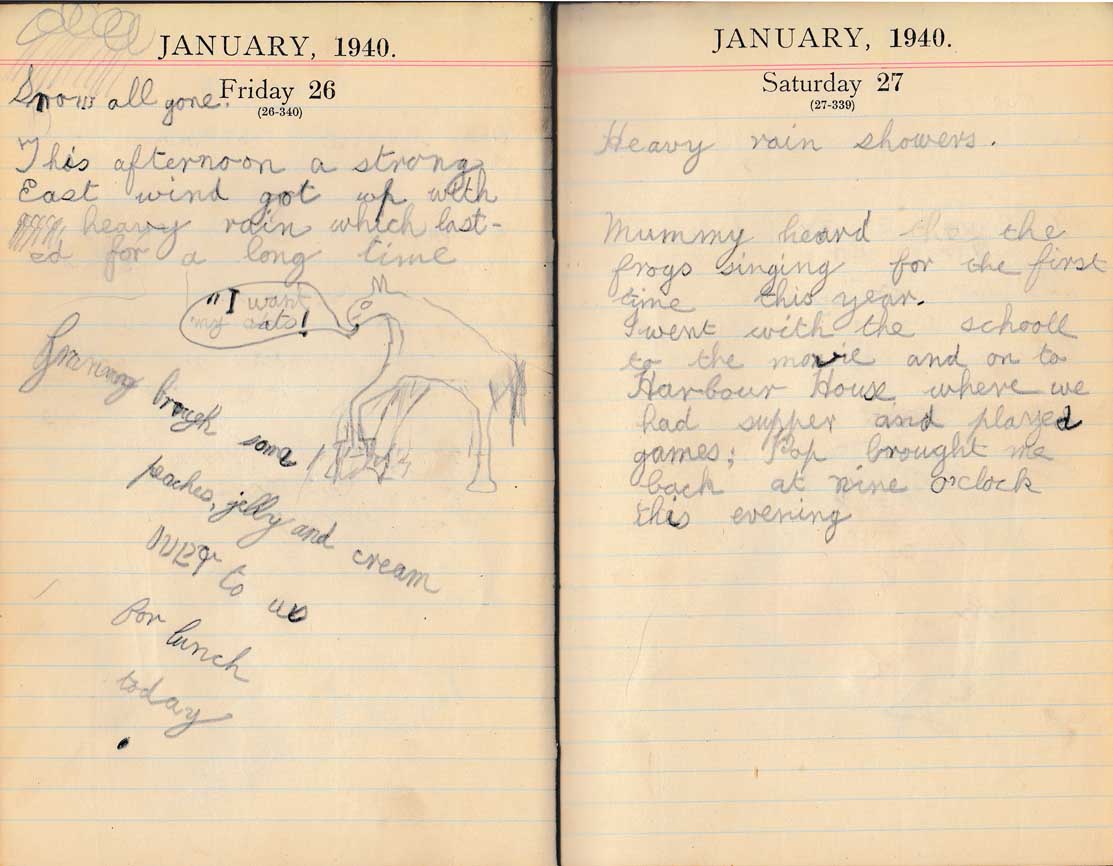 JANUARY, 1940.
Friday 26
(26-340)
Snow all gone.
This afternoon a strong
East wind got up with
heavy rain which last-
ed for a long time
"I want
my oats!
Granny brough some
peaches, jelly and cream
over to us
for lunch
today
JANUARY, 1940.
Saturday 27
(27-339)
Heavy rain showers.
Mummy heard the
frogs singing for the first
time this year.
I went with the schooll
to the movie and on to
Harbour House where we
had supper and played
games; Pop brought me
back at nine o'clock
this evening